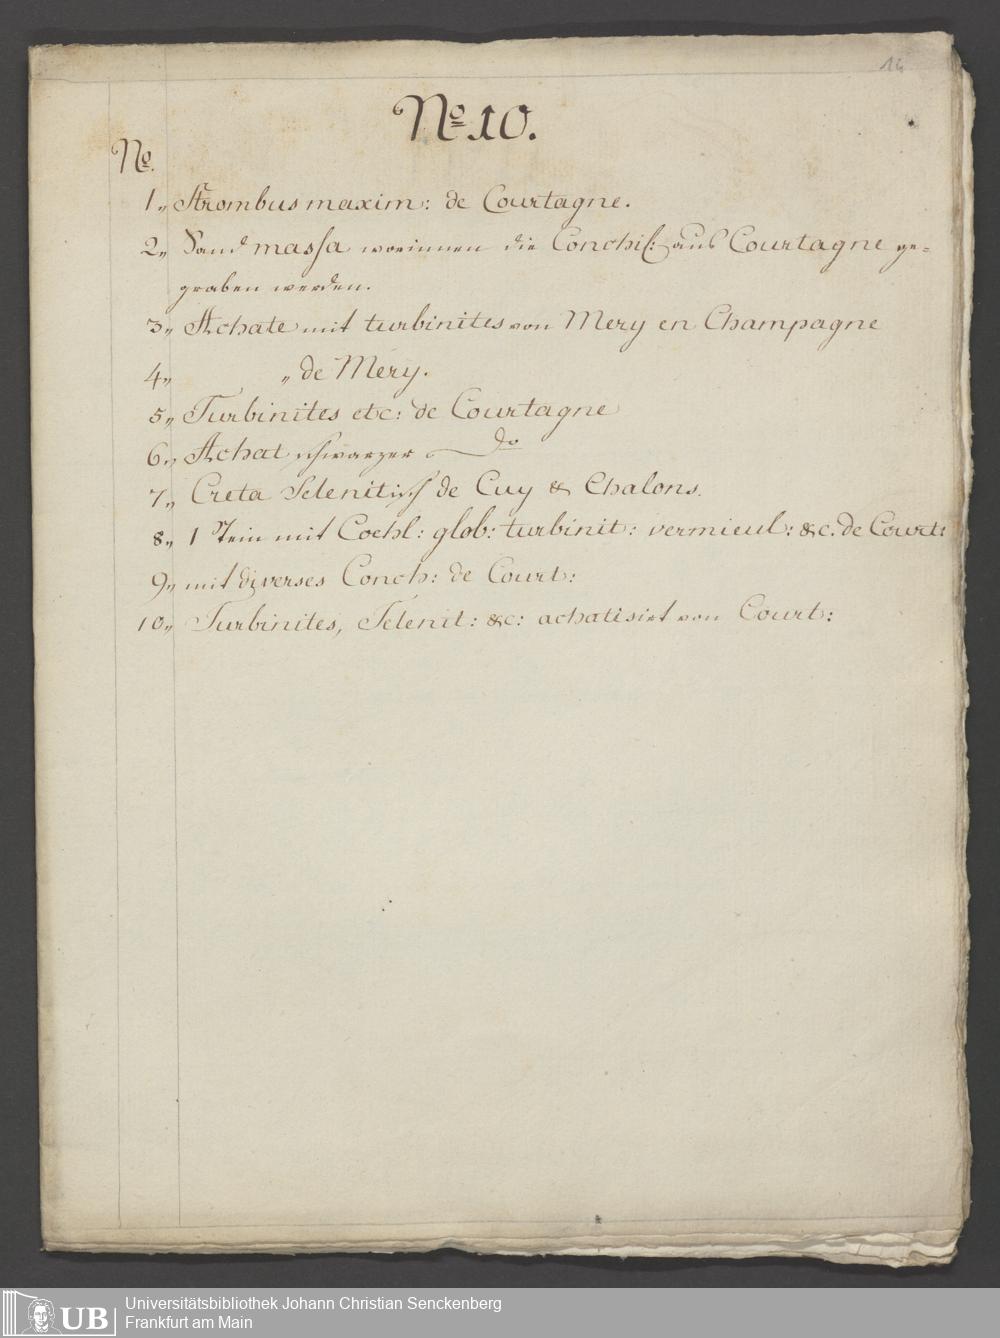 14
No. 10.
No.
1„ Strombus maxim: de Courtagne.
2„ Sand massa worinnen die Conchil: aus Courtagne ge-
graben werden.
3„ Achate mit turbinites von Mery en Champagne
4„ „ de Méry.
5„ Turbinites etc: de Courtagne
6„ Achat schwarzer do
7„ Creta Selenitisch de Cuy & Chalons.
8„ 1 Stein mit Cochl: glob: turbinit: vermicul: &c. de Court:
9„ mit diverses Conch: de Court:
10„ Turbinites, Selenit: &c: achatisirt von Court:
UB
Universitätsbibliothek Johann Christian Senckenberg
Frankfurt am Main